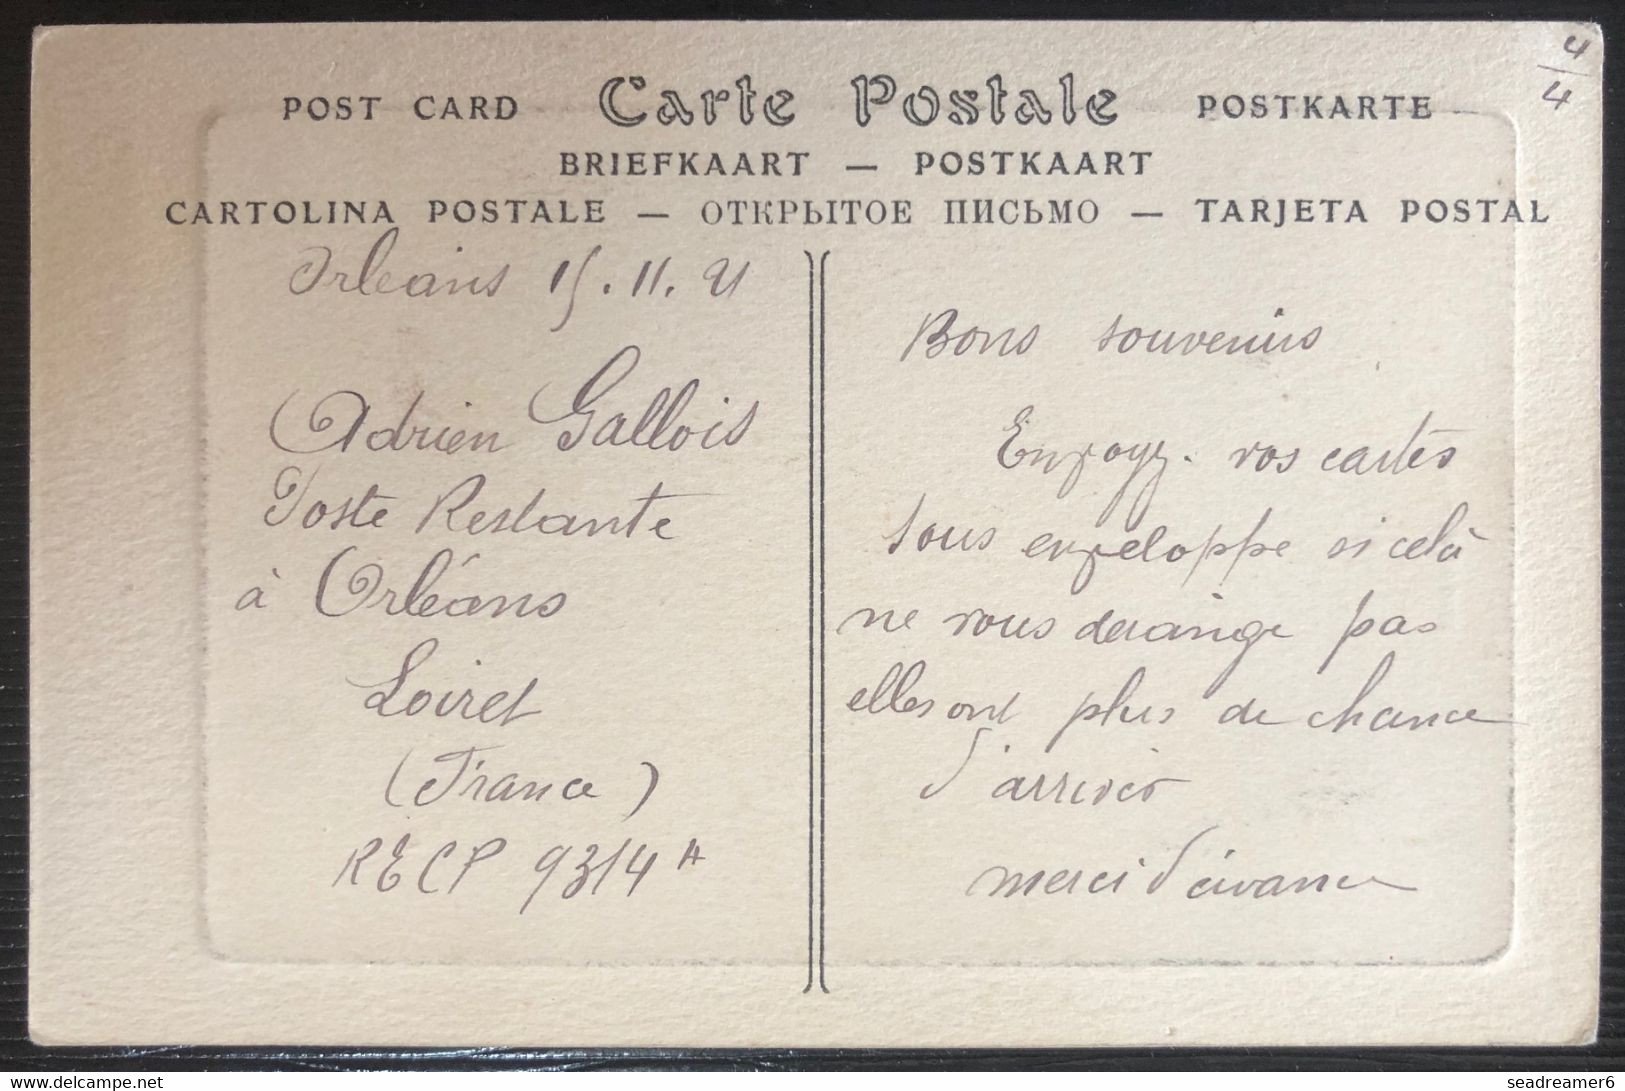 4/4
POST CARD Carte Postale POSTKARTE
BRIEFKAART — POSTKAART
CARTOLINA POSTALE — ОТКРЫТОЕ ПИСЬМО — TARJETA POSTAL
Orleans 15.11.21
Adrien Gallois
Poste Restante
à Orléans
Loiret
(France)
RECP 9314 A
Bons souvenirs
Envoyez. vos cartes
sous enveloppe si celà
ne vous derange pas
elles ont plus de chance
d'arriver
merci d'avance
seadreamer6
delcampe.net